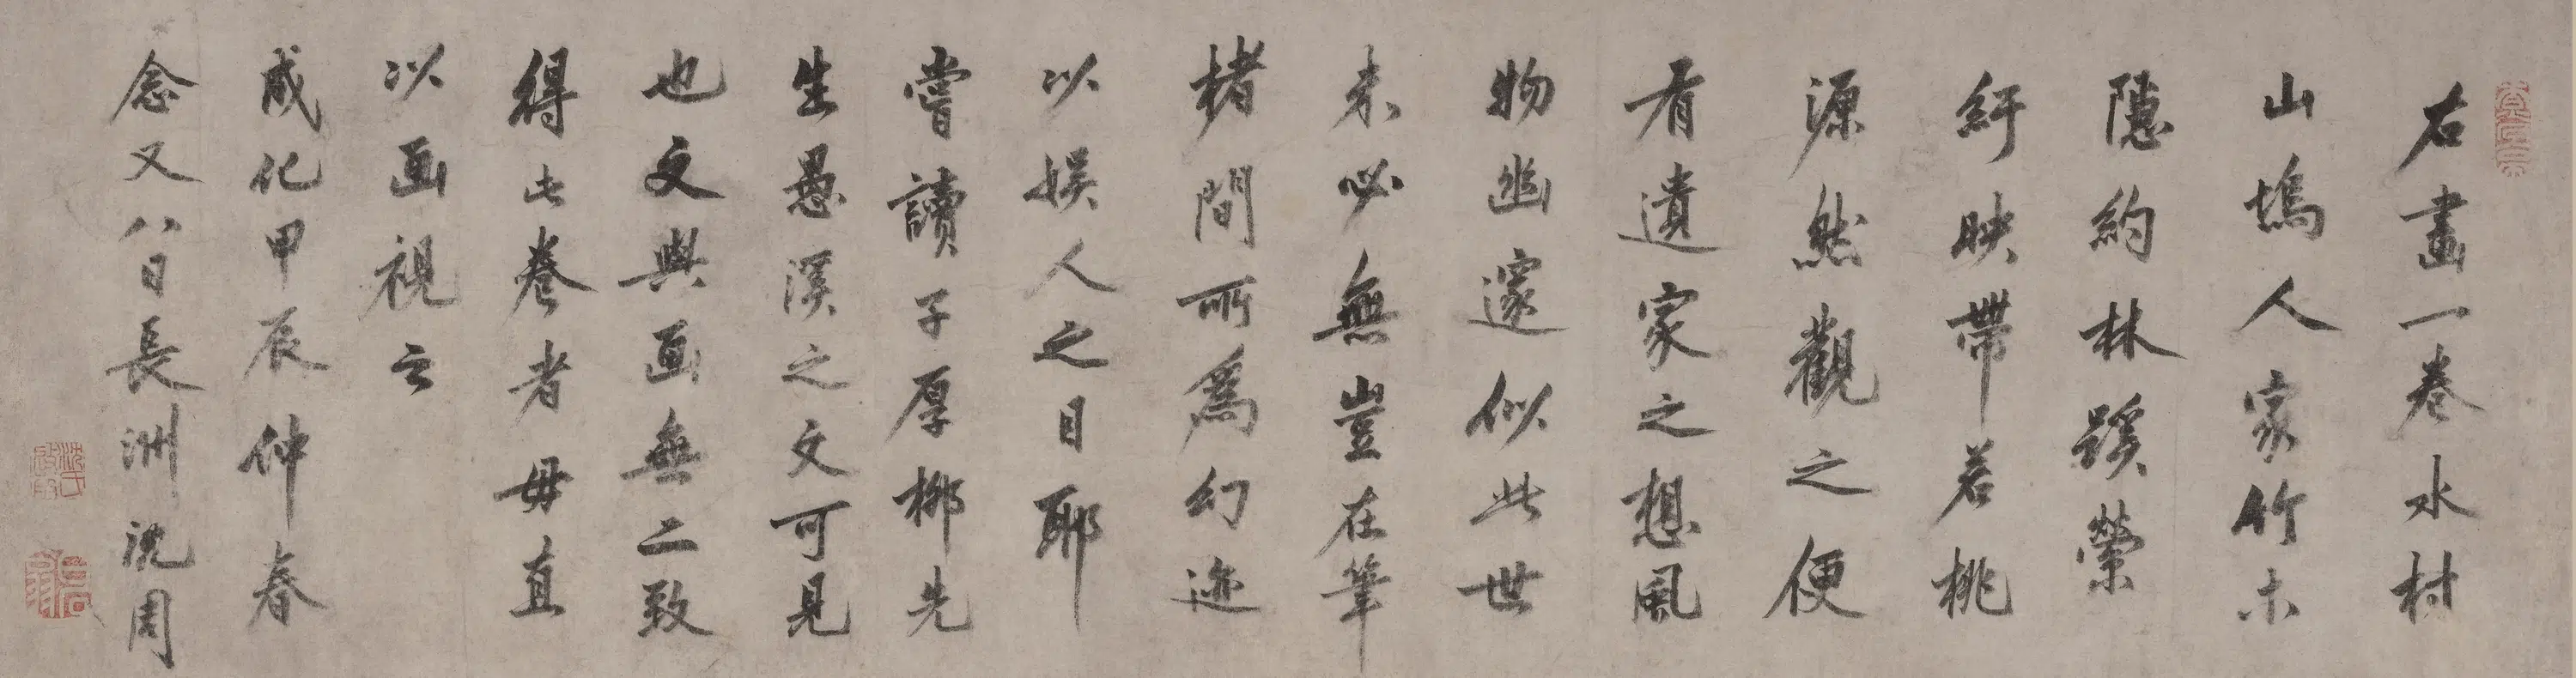 右畫一卷水村
山塢人家竹木
隱約林蹊縈
紆映帶若桃
源然觀之便
有遺家之想風
物幽邃似此世
未必無豈在筆
楮間所爲幻迹
以娛人之目耶
嘗讀子厚柳先
生愚溪之文可見
也文與画無二致
得此卷者毋直
以画視云
成化甲辰仲春
念又八日長洲沈周